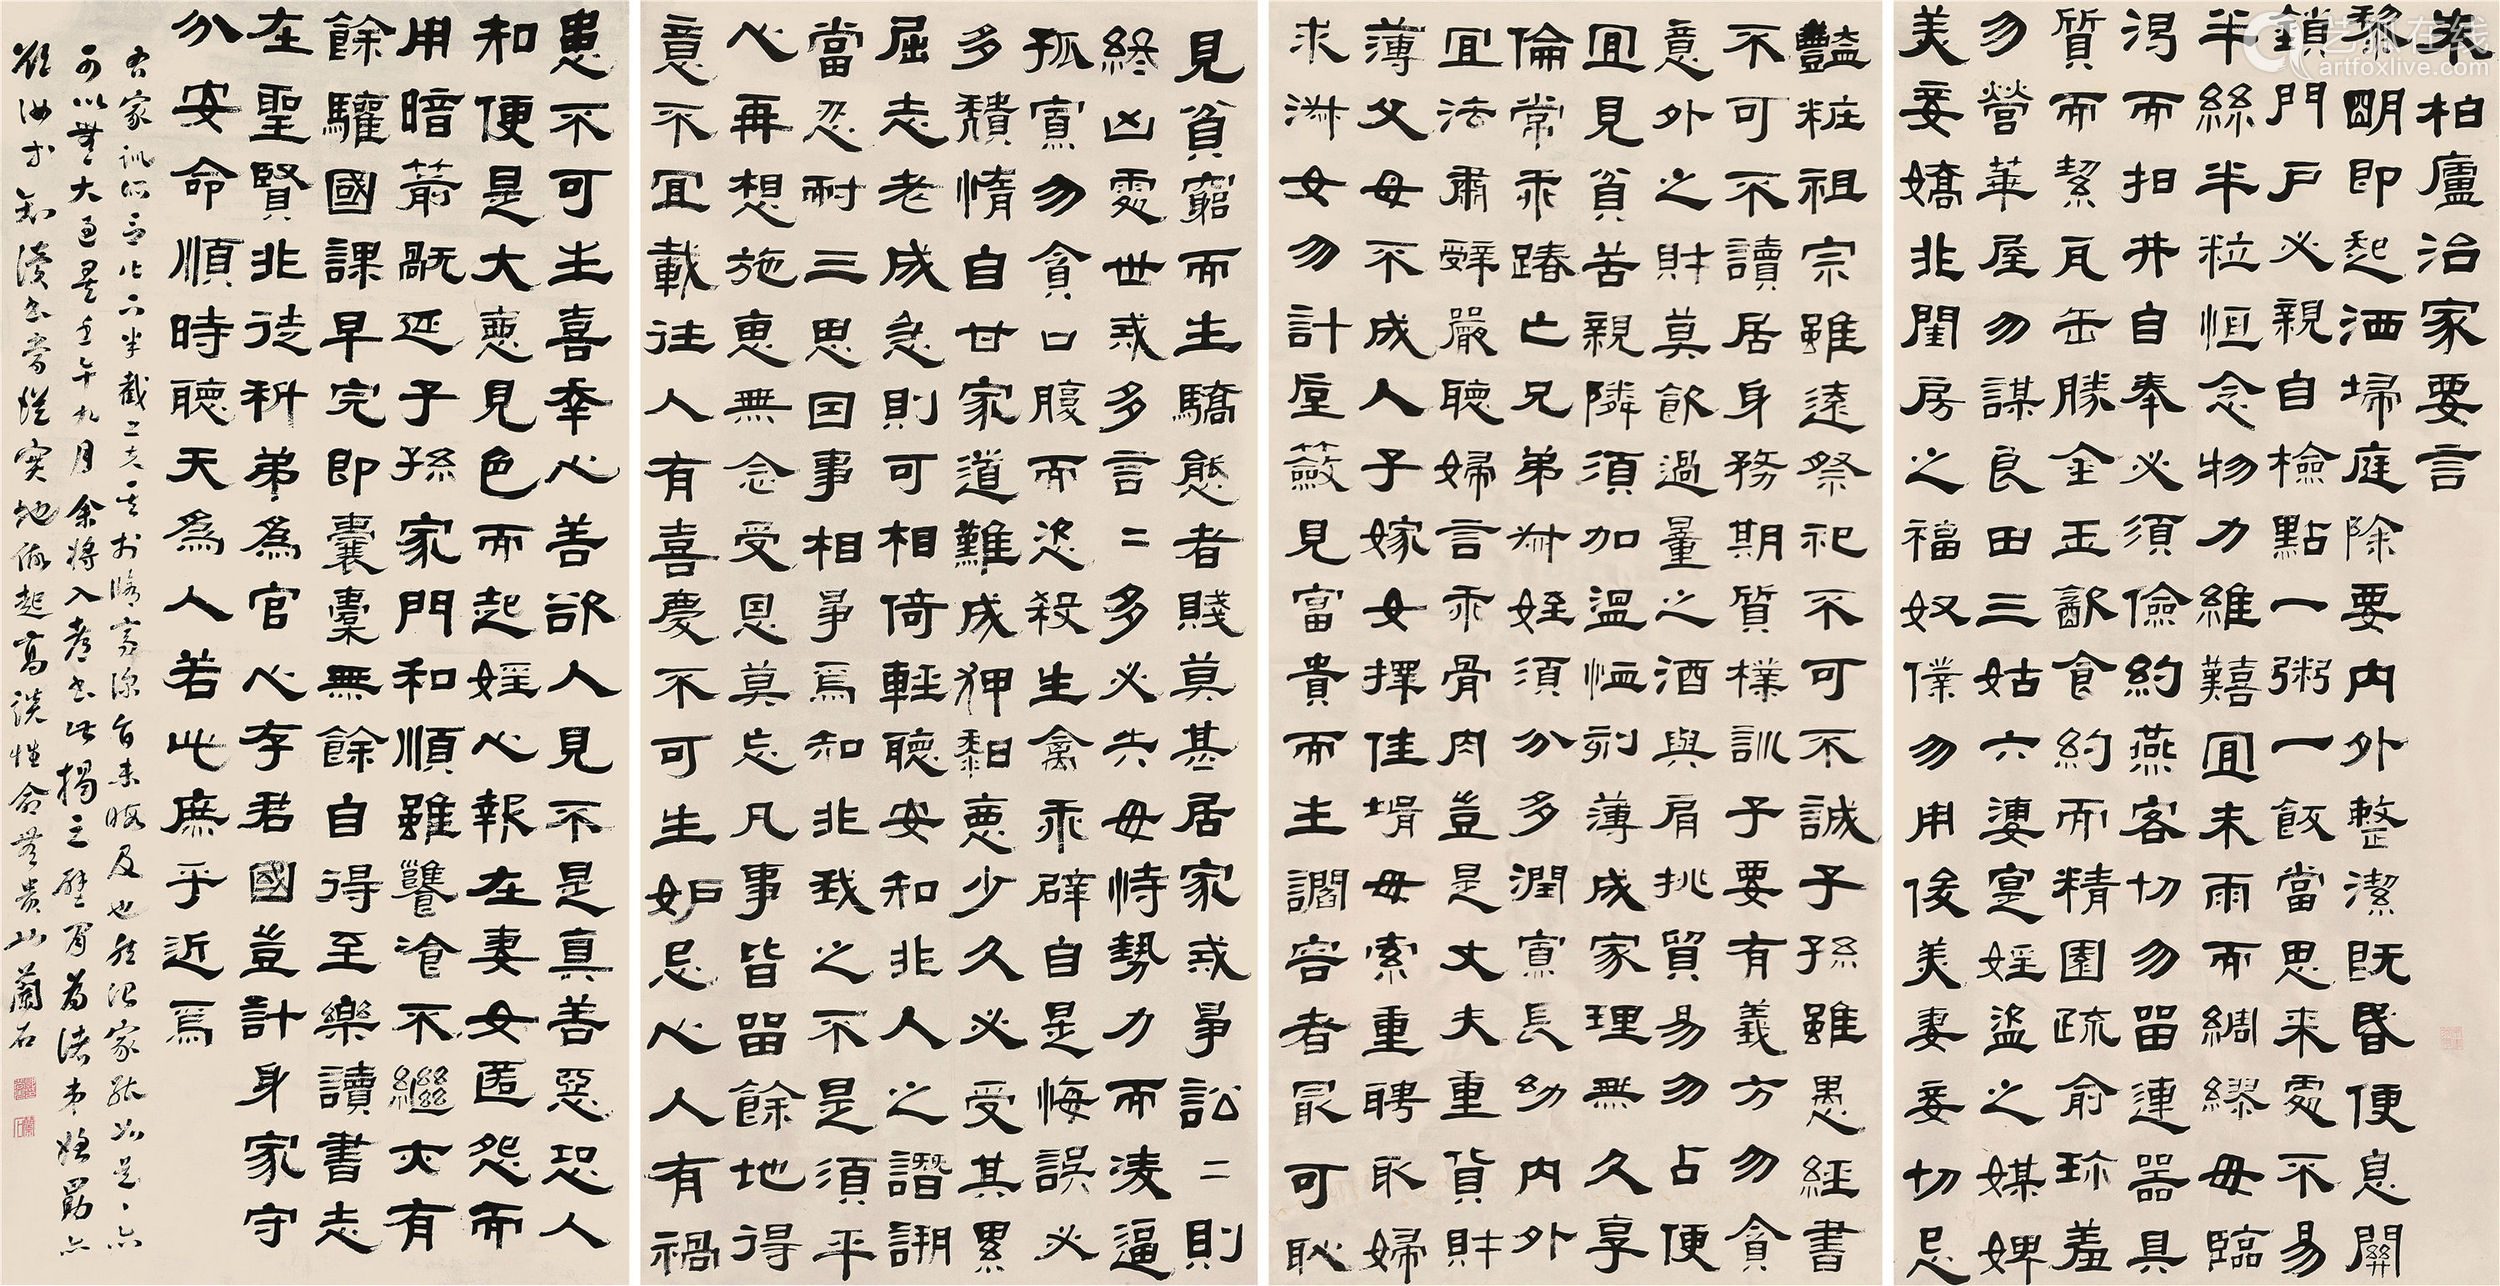 朱柏廬治家要言
黎明即起洒埽庭除要内外整潔既昏便息關
鎖門戶必親自檢點一粥一飯當思来處不易
半絲半粒恒念物力維囏宜未雨而綢繆毋臨
渴而抇井自奉必須儉約燕客切勿留連器具
質而絜瓦缶勝金玉飲食約而精園疏俞珎羞
勿營華屋勿謀良田三姑六婆寔婬盜之媒婢
美妾嬌非閨房之福奴僕勿用俊美妻妾切忌
豔粧祖宗雖遠祭祀不可不誠子孫雖愚經書
不可不讀居身務期質樸訓子要有義方勿貪
意外之財莫飲過量之酒與肩挑貿易勿占便
宜見貧苦親隣須加溫恤刻薄成家理無久享
倫常乖踳亡兄弟叔姪須分多潤寡長幼内外
宜法肅辭嚴聽婦言乖骨肉豈是丈夫重貨財
薄父母不成人子嫁女擇佳壻毋索重聘取婦
求淑女勿計厚籢見富貴而生讇容者最可恥
見貧窮而生驕態者賤莫甚居家戒爭訟二則
終凶處世戒多言二多必失毋恃勢力而凌逼
孤寡勿貪口腹而恣殺生禽乖辟自是悔誤必
多穨惰自甘家道難成狎䵑惡少久必受其累
屈志老成急則可相倚輕聽安和非人之譖
當忍耐三思因事相爭焉知非我之不是須平
心再想施恵無念受恩莫忘凡事皆留餘地得
意不宜載往人有喜慶不可生妒忌心人有禍
患不可生喜幸心善欲人見不是真善惡恐人
知便是大惡見色而起婬心報在妻女匿怨而
用暗箭既延子孫家門和順雖饔飧不繼大有
餘驩國課早完即囊橐無餘自得至樂讀書志
在聖賢非徒科第為官心存君國豈計身家守
分安命順時聽天為人若此庶乎近焉
右家訓所言止下半截工夫其於脩齊深旨未暇及也然治家能如是、亦
可以無大過矣壬午九月余將入都書此揭之壁間為諸弟姪勗亦
欲汝知讀書當從實地做起高談性命無貴 蘭石
艺狐在线
artfoxlive.com